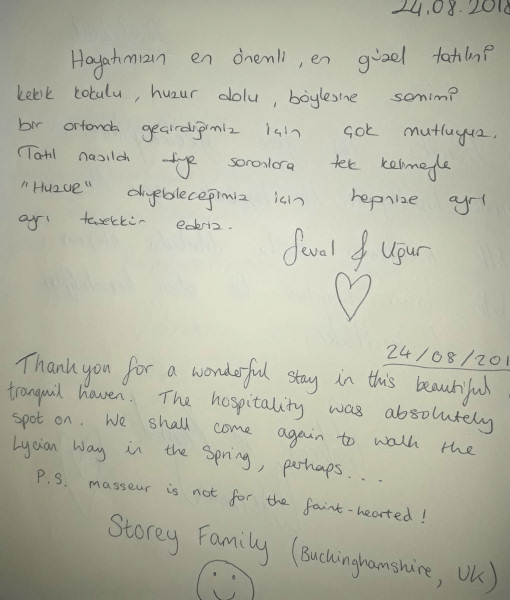 24.08.2018
Hayatımızın en önemli, en güzel tatilini
kekik kokulu, huzur dolu, böylesine samimi
bir ortamda geçirdiğimiz için çok mutluyuz.
Tatil nasıldı diye soranlara tek kelimeyle
"Huzur" diyebileceğimiz için hepinize ayrı
ayrı teşekkür ederiz.
Seval & Uğur
24/08/201
Thank you for a wonderful stay in this beautiful
tranquil haven. The hospitality was absolutely
spot on. We shall come again to walk the
Lycian Way in the Spring, perhaps...
P.S. masseur is not for the faint-hearted!
Storey Family (Buckinghamshire, UK)